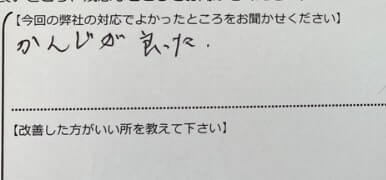 【今回の弊社の対応でよかったところをお聞かせください】
かんじが良った.
【改善した方がいい所を教えて下さい】